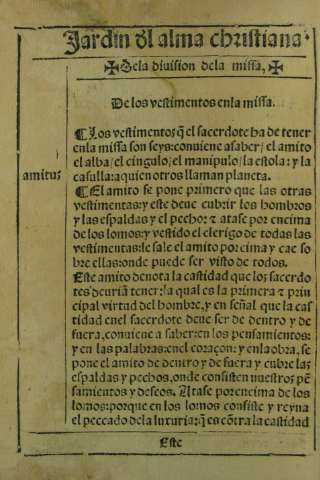 Jardin dl alma christiana
✠ De la division dela missa, ✠
De los vestimentos enla missa.
¶ Los vestimentos q̃ el sacerdote ha de tener
enla missa son seys: conuiene asaber/ el amito
el alba/ el cingulo/ el manipulo/ la estola: y la
casulla: a quien otros llaman planeta.
amitus
¶ El amito se pone primero que las otras
vestimentas: y este deue cubrir los hombros
y las espaldas y el pecho: ⁊ atase por encima
de los lomos: y vestido el clerigo de todas las
vestimentas: le sale el amito por cima y cae so
bre ellas: onde puede ser visto de todos.
Este amito denota la castidad que los sacerdo
tes deurian tener: la qual es la primera ⁊ prin
cipal virtud del hombre, y en señal que la cas
tidad enel sacerdote deue ser de dentro y de
fuera, conuiene a saber: en los pensamientos:
y en las palabras: enel coraçon: y enla obra, se
pone el amito de dentro y de fuera y cubre las
espaldas y pechos, onde consisten nuestros pẽ
samientos y deseos. Atase por encima de los
lomos: porque en los lomos consiste y reyna
el peccado dela luxuria: q̃ es cõtra la castidad
Este